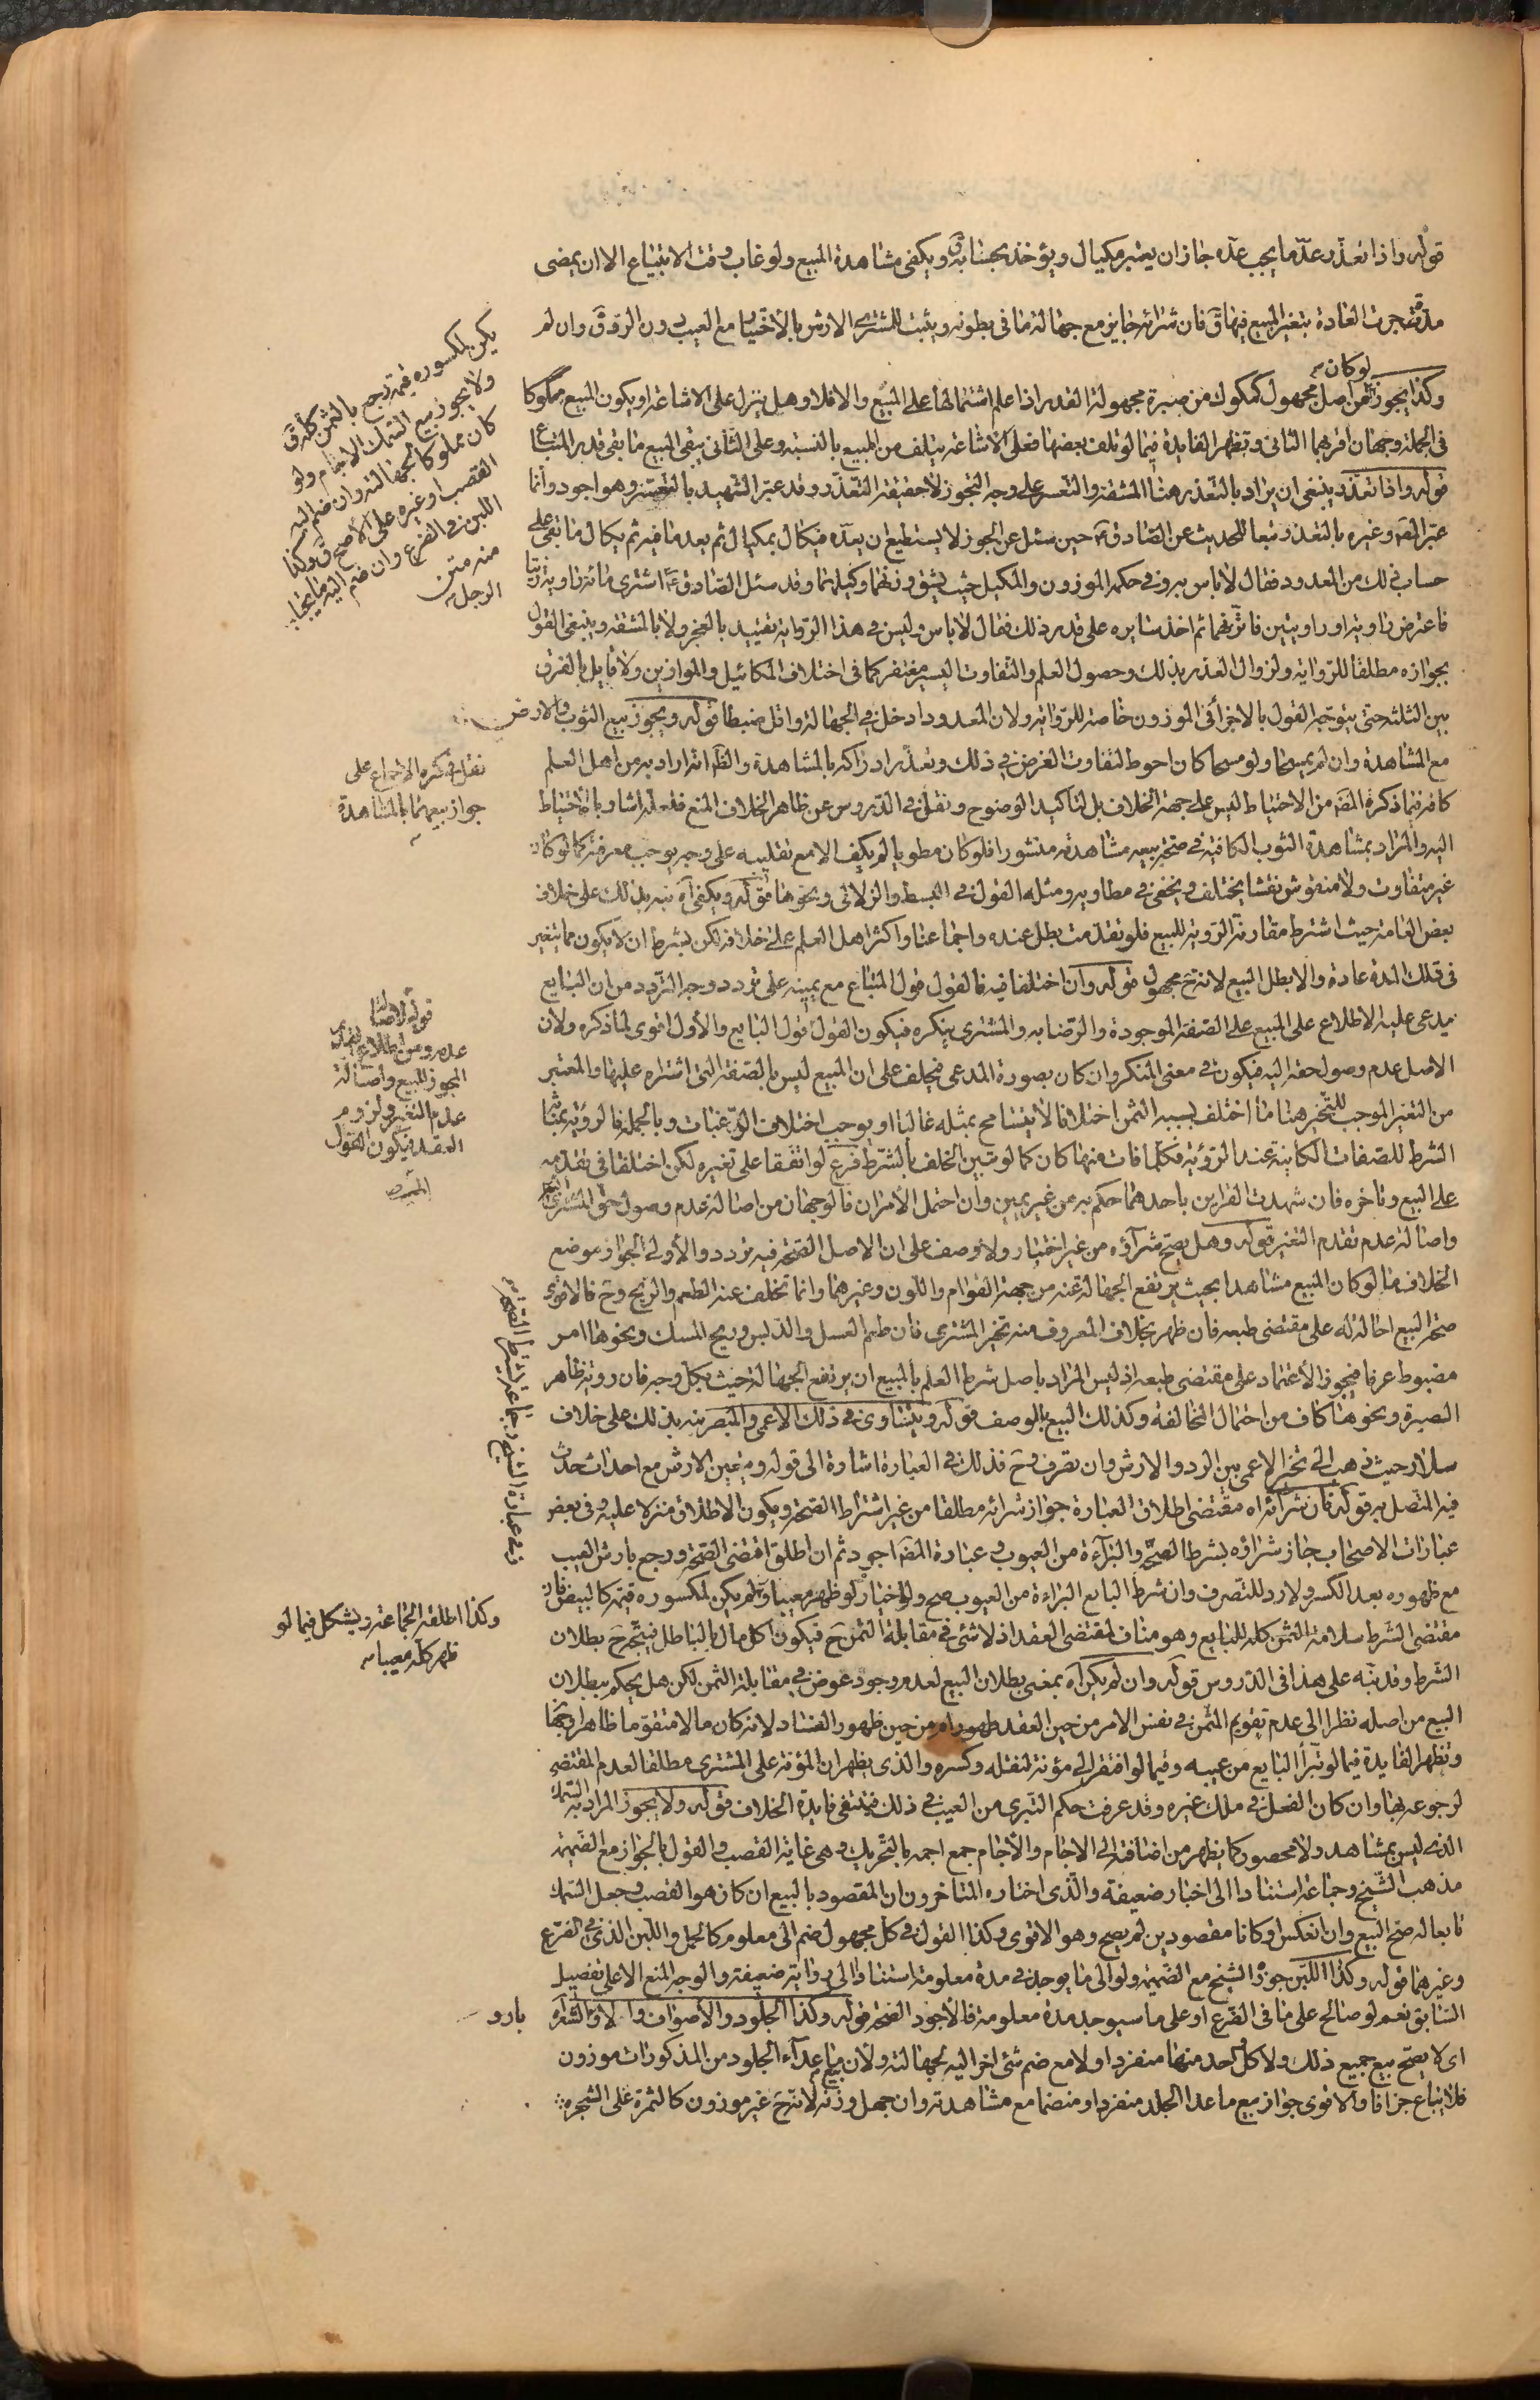 قوله واذا تعذر عدّ ما يجب عدّه جاز ان يعتبر مكيال ويؤخذ بحسابه ق ويكفى مشاهدة المبيع ولو غاب وقت الابتياع الا ان يمضى
مدّة جرت العادة بتغير المبيع فيها ق فان شرائه جايز مع جهالة ما فى بطونه ويثبت للمشترى الارش بالاختيار مع العيب دون الرد ق وان لم
وكذا يجوز لو كان من اصل مجهول كمكوك من صبرة مجهولة القدر اذا علم اشتمالها على المبيع والا فلا وهل ينزل على الاشاعة او يكون المبيع مكوكا
فى الجملة وجهان اقربهما الثانى وتظهر الفايدة فيما لو تلف بعضها فعلى الاشاعة يتلف من المبيع بالنسبة وعلى الثانى يبقى المبيع ما بقى قدر المبتاع
قوله واذا تعذر ينبغى ان يراد بالتعذر هنا المشقة والتعسر على وجه التجوز لا حقيقة التعذر وقد عبّر الشهيد بالتعسر وهو اجود وانما
عبّر المصَ وغيره بالتعذر تبعا للحديث عن الصادق عَ حين سئل عن الجوز لا يستطيع ان يعدّه فيكال بمكيال ثم يعد ما فيه ثم يكال ما بقى على
حساب ذلك من المعدود فقال لا باس به وفى حكمه الموزون والمكيل حيث يشق وزنهما وكيلهما وقد سئل الصادق عَ اشترى مائة راوية زيتا
فاعترض راوية او راويتين فاتزنهما ثم اخذ سايره على قدر ذلك فقال لا باس وليس فى هذا الرواية تقييد بالعجز ولا بالمشقة وينبغى القول
بجوازه مطلقا للرواية ولزوال الغرر بذلك وحصول العلم والتفاوت اليسير مغتفر كما فى اختلاف المكائيل والموازين ولا قايل بالفرق
بين الثلثة حتى يتوجه القول بالاجزأ فى الموزون خاصة للرواية ولان المعدود ادخل فى الجهالة واقل ضبطا قوله ويجوز بيع الثوب والارض
مع المشاهدة وان لم يمسحا ولو مسحا كان احوط لتفاوت الغرض فى ذلك وتعذر ادراكه بالمشاهدة والظَ انه اراد به من اهل العلم
كافة فيما ذكره المصَ من الاحتياط ليس على جهة الخلاف بل لتاكيد الوضوح ونقل فى الدروس عن ظاهر الخلاف المنع فلعله اشار بالاحتياط
اليه والمراد بمشاهدة الثوب الكافية فى صحة بيعه مشاهدته منشورا فلو كان مطويا لم يكف الا مع تقليبه على وجه يوجب معرفته كما لو كان
غير متفاوت ولا منقوش نقشا يختلف ويخفى فى مطاويه ومثله القول فى البسط والزلالى ونحوها قوله ويكفى آه نبه بذلك على خلاف
بعض العامة حيث اشترط مقارنة الروية للبيع فلو تقدمت بطل عنده واجماعنا واكثر اهل العلم على خلافه لكن بشرط ان لا يكون مما يتغير
فى تلك المدة عادة والا بطل البيع لانه حَ مجهول قوله وان اختلفا فيه فالقول قول المبتاع مع يمينه على تردد وجه التردد من ان البايع
يدعى عليه الاطلاع على المبيع على الصفة الموجودة والرضا به والمشترى ينكره فيكون القول قول البايع والاول اقوى لما ذكره ولان
الاصل عدم وصول حقه اليه فيكون فى معنى المنكر وان كان بصورة المدعى فيحلف على ان المبيع ليس بالصفة التى اشتراه عليها والمعتبر
من التغير الموجب للتخير هنا ما اختلف بسببه الثمن اختلافا لا يتسامح بمثله غالبا او يوجب اختلاف الرغبات وبالجملة فالروية بمثابة
الشرط للصفات الكائنة عند الرؤية فكلما فات منها كان كما لو تبين الخلف بالشرط فرع لو اتفقا على تغيره لكن اختلفا فى تقدمه
على البيع وتاخره فان شهدت القراين باحدهما حكم به من غير يمين وان احتمل الامران فالوجهان من اصالة عدم وصول حق المشترى اليه
واصالة عدم تقدم التغير قوله وهل يصح شرآؤه من غير اختبار ولا وصف على ان الاصل الصحة فيه تردد والاولى الجواز موضع
الخلاف ما لو كان المبيع مشاهدا بحيث يرتفع الجهالة عنه من جهة القوام واللون وغيرهما وانما تخلف عنه الطعم والريح وحَ فالاقوى
صحة البيع احالة له على مقتضى طبعه فان ظهر بخلاف المعروف منه تخير المشترى فان طعم العسل والدبس وريح المسك ونحوها امر
مضبوط عرفا فيجوز الاعتماد على مقتضى طبعه اذ ليس المراد باصل شرط العلم بالمبيع ان يرتفع الجهالة حيث بكل وجه فان روية ظاهر
الصبرة ونحوها كاف من احتمال المخالفة وكذلك البيع بالوصف قوله ويتساوى فى ذلك الاعمى والمبصر نبه بذلك على خلاف
سلار حيث ذهب الى تخير الاعمى بين الرد والارش وان تصرف وحَ فذلك فى العبارة اشارة الى قوله ويتعين الارش مع احداث حدث
فيه المتصل به قوله فان شرائه آه مقتضى اطلاق العبارة جواز شرائه مطلقا من غير اشتراط الصحة ويكون الاطلاق منزلا عليه وفى بعض
عبارات الاصحاب جاز شراؤه بشرط الصحة والبرآءة من العيوب وعبارة المصَ اجود ثم ان اطلق اقتضى الصحة ورجع بارش العيب
مع ظهوره بعد الكسر ولا رد للتصرف وان شرط البايع البراءة من العيوب صح ولا خيار لو ظهر معيبا ولو لم يكن لمكسوره قيمة كالبيض فان
مقتضى الشرط سلامة الثمن كله للبايع وهو مناف لمقتضى العقد اذ لا شئ فى مقابلة الثمن حَ فيكون اكل مال بالباطل فيتجه حَ بطلان
الشرط وقد نبه على هذا فى الدروس قوله وان لم يكن آه بمعنى بطلان البيع لعدم وجود عوض فى مقابلة الثمن لكن هل يحكم ببطلان
البيع من اصله نظرا الى عدم تقويم المثمن فى نفس الامر من حين العقد ام من حين ظهور الفساد لانه كان مالا متقوما ظاهرا وجها
وتظهر الفايدة فيما لو تبرأ البايع من عيبه وفيما لو افتقر الى مؤنة لنقله وكسره والذى يظهر ان المؤنة على المشترى مطلقا لعدم المقتضى
لرجوعه بها وان كان الفعل فى ملك غيره وقد عرفت حكم التبرى من العيب فى ذلك فينتفى فايدة الخلاف قوله ولا يجوز المراد به السمك
الذى ليس بمشاهد ولا محصور كما يظهر من اضافته الى الاجام والاجام جمع اجمه بالتحريك وهى غابة القصب والقول بالجواز مع الضميمة
مذهب الشيخ وجماعة استنادا الى اخبار ضعيفة والذى اختاره المتاخرون ان المقصود بالبيع ان كان هو القصب وجعل السمك
تابعا له صح البيع وان انعكس او كانا مقصودين لم يصح وهو الاقوى وكذا القول فى كل مجهول ضم الى معلوم كالحمل واللبن الذى فى الضرع
وغيرهما قوله وكذا اللبن جوز الشيخ مع الضميمة ولو الى ما يوجد فى مدة معلومة استنادا الى رواية ضعيفة والوجه المنع الا على تفصيل
السابق نعم لو صالح على ما فى الضرع او على ما سيوجد مدة معلومة فالاجود الصحة قوله وكذا الجلود والاصواف والاوبار والشعر آه
اى لا يصح بيع جميع ذلك ولا كل واحد منها منفردا ولا مع ضم شئ اخر اليه لجهالته ولان بيع ما عدآء الجلود من المذكورات موزون
فلا يباع جزافا والاقوى جواز بيع ما عدا الجلد منفردا ومنضما مع مشاهدته وان جهل وزنه لانه حَ غير موزون كالثمرة على الشجرة
يكن لمكسوره قيمة رجع بالثمن كله ق
ولا يجوز بيع السمك الاجام ولو
كان مملوكا لجهالته وان ضم اليه
القصب او غيره على الاصح ق وكذا
اللبن فى الضرع وان ضم اليه ما يحتلب
منه متن
الرجل
نقل فى كره الاجماع على
جواز بيعهما بالمشاهدة
عدم التغير ولزوم
العقد فيكون القول
وكذا اطلقه الجماعة ويشكل فيما لو
ظهر كله معيبا